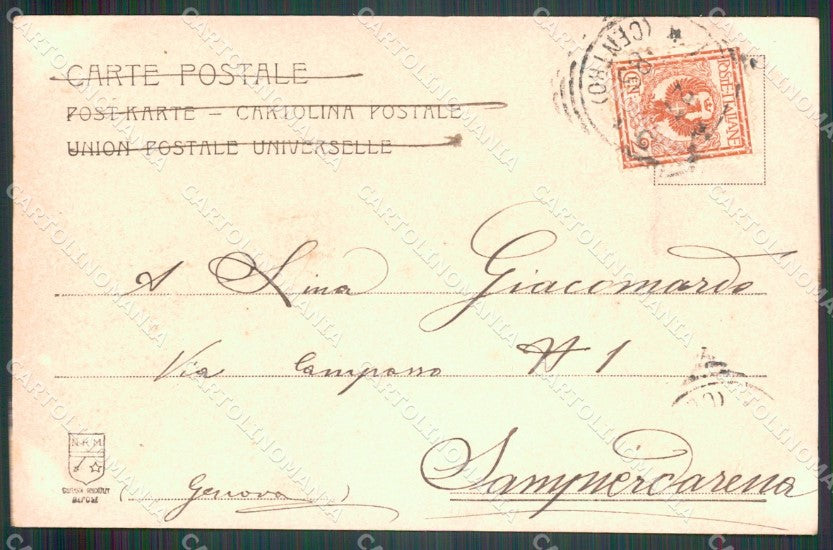 CARTE POSTALE
POST-KARTE – CARTOLINA POSTALE
UNION POSTALE UNIVERSELLE
(CENTRO)
POSTE ITALIANE
A Lina Giacomardo
Via Campasso N 1
Sampierdarena
(Genova)
N.R.M.
CARTOLINOMANIA